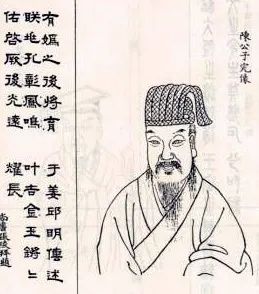 陳公子完像
有媯之後將育于姜邱明傳述
朕兆孔彰鳳鳴叶吉金玉鏘々
佑啓厥後光遠耀長
尚書張浚拜題